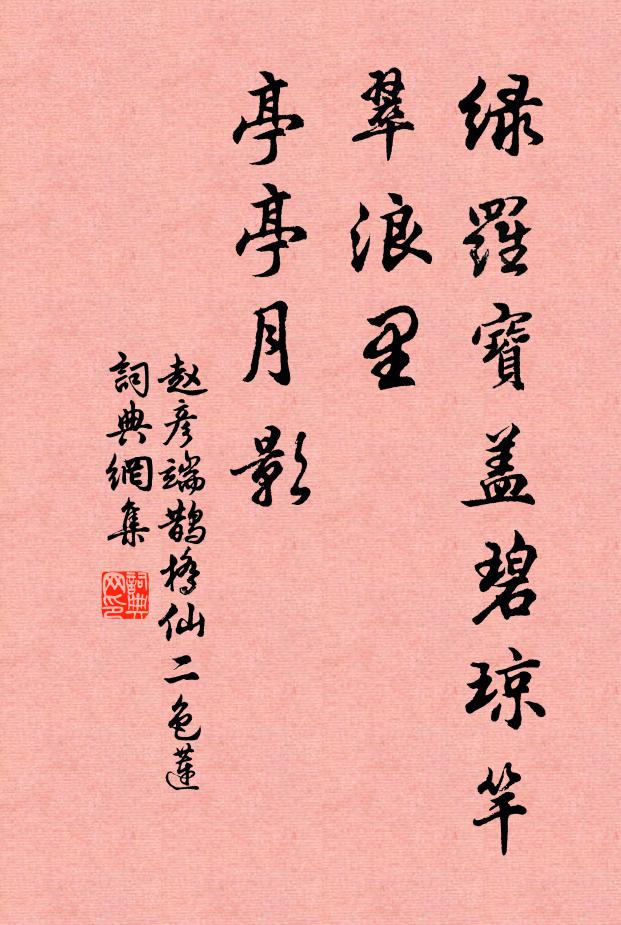 绿羅寶盖碧琼竿
翠浪里
亭亭月影
赵彦端鹊橋仙二色蓮
詞典網集
詞典网印